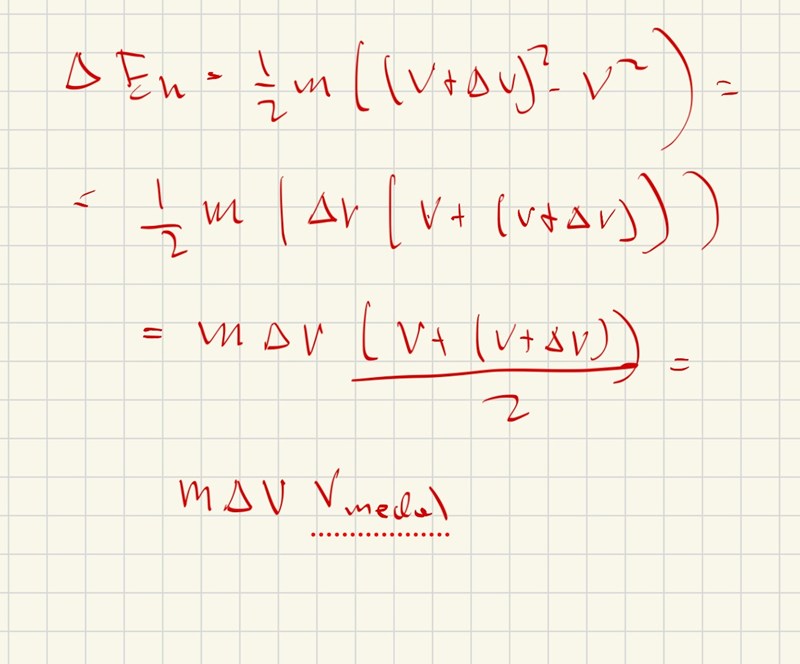 Δ En = 1/2 m ((v+Δv)² - v²) =
= 1/2 m (Δv (v + (v+Δv)))
= m Δv (v + (v+Δv))/2 =
m Δv v_medel